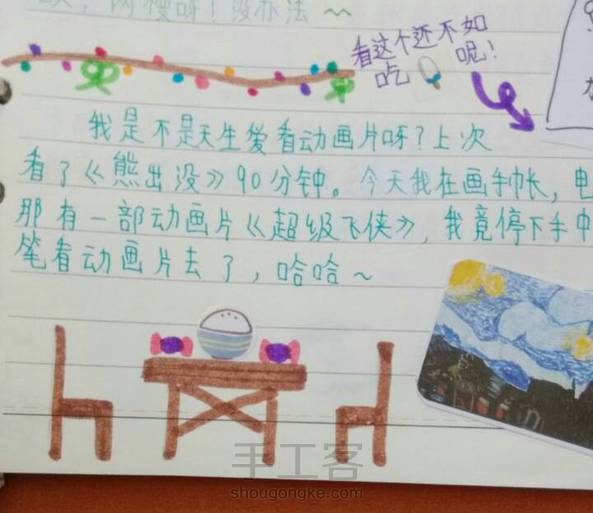 网梗呀！没办法～
看这个还不如
吃 呢！
我是不是天生爱看动画片呀？上次
看了《熊出没》90分钟。今天我在画手帐，电
那有一部动画片《超级飞侠》，我竟停下手中
笔看动画片去了，哈哈～
手工客
shougongke.com